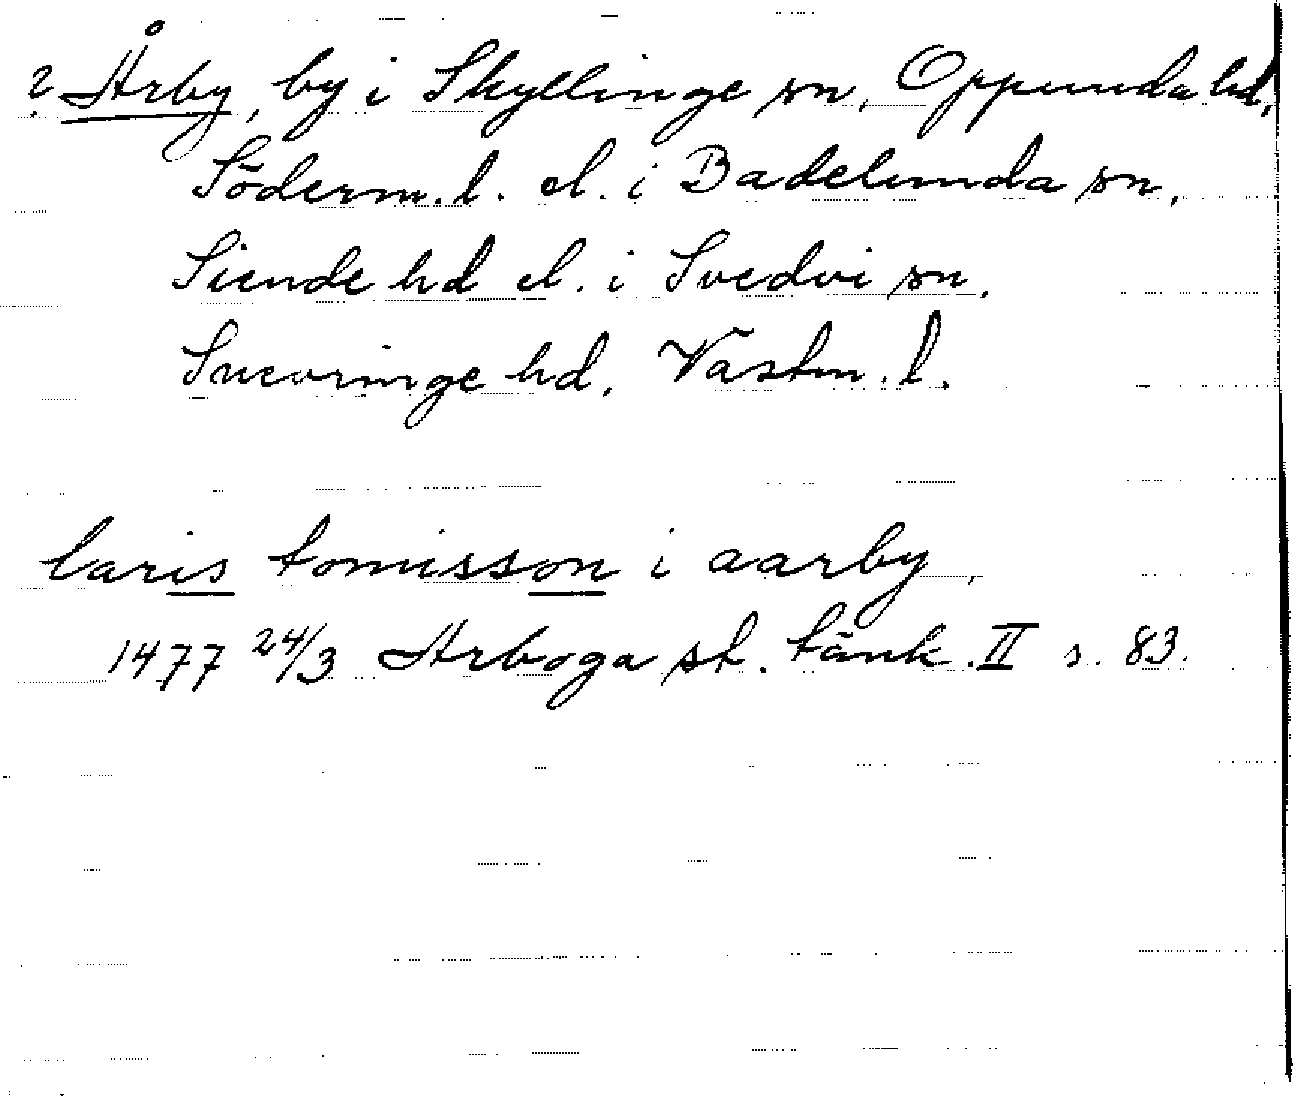 ? Årby, by i Skyllinge sn, Oppunda hd,
Söderm. l. el. i Badelunda sn,
Siende hd el. i Svedvi sn,
Snevringe hd, Västm. l.
laris tomisson i aarby,
1477 24/3 Arboga st. tänk. II s. 83.